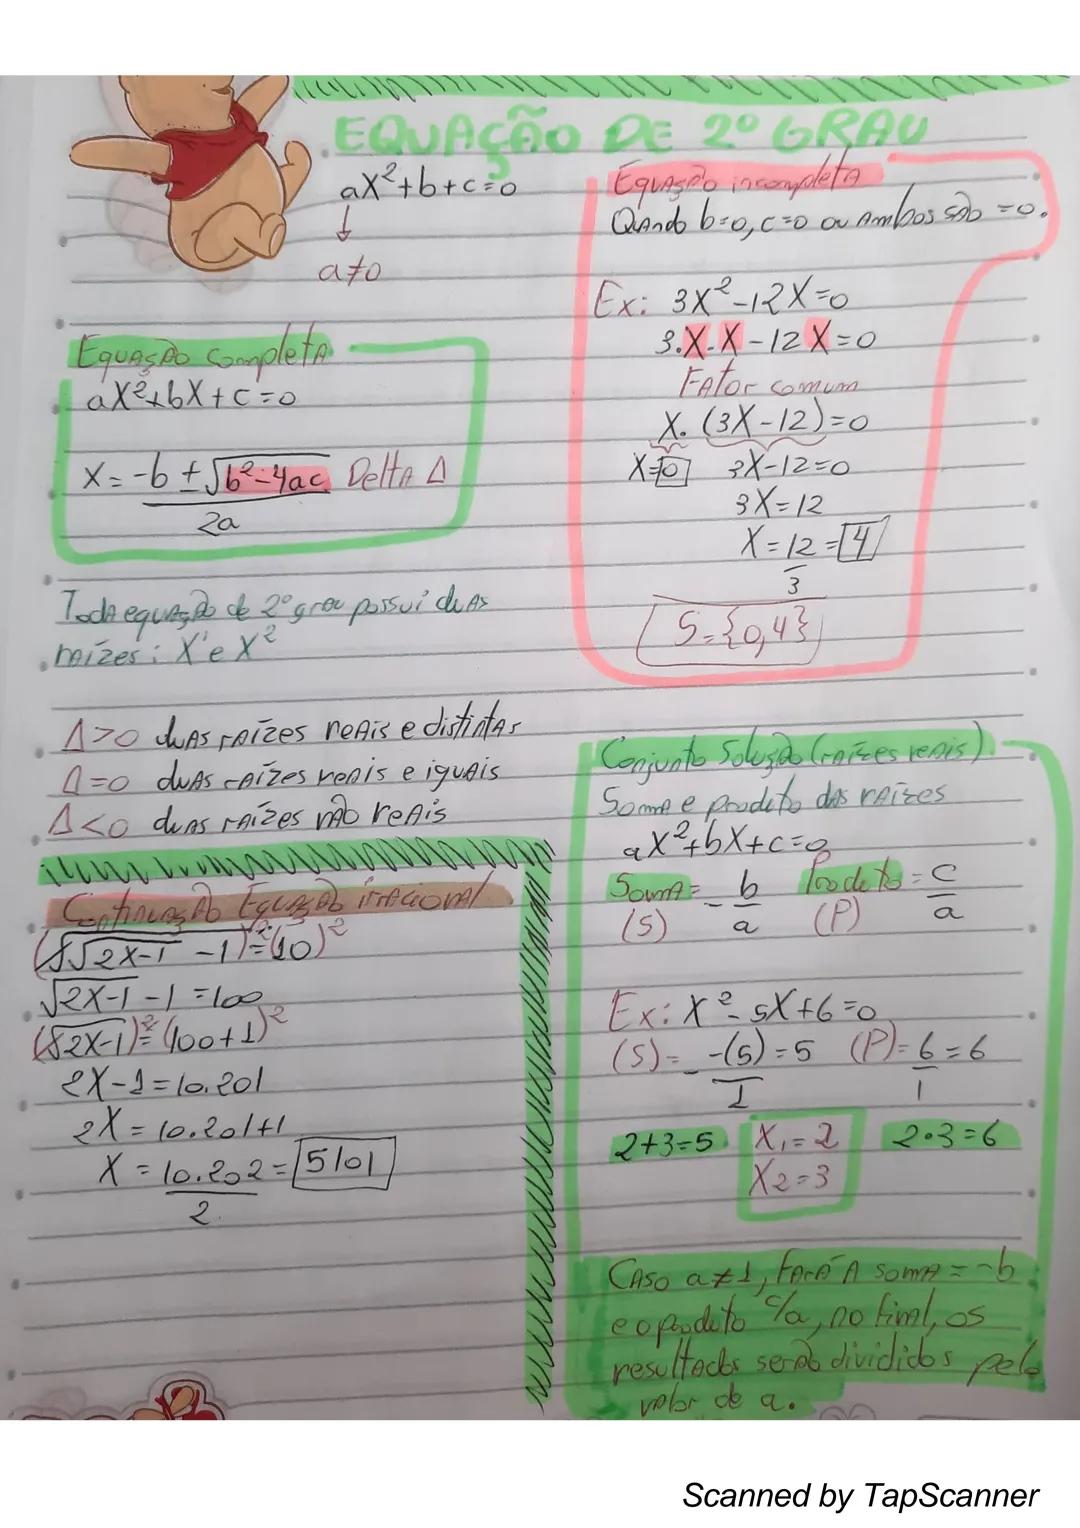 EQUAÇÃO DE 2º GRAU
aX²+b+c=0
↓
a≠0
Equação completa
aX²+bX+c=0
X = -b ± √b²-4ac Delta Δ
2a
Toda equação de 2º grau possui duas
raízes: X' e X²
Δ>0 duas raízes reais e distintas
Δ=0 duas raízes reais e iguais
Δ<0 duas raízes não reais
Equação incompleta
Quando b=0, c=0 ou Ambos são =0.
Ex: 3X²-12X=0
3.X.X-12X=0
Fator comum
X. (3X-12)=0
X=0 3X-12=0
3X=12
X=12=4
3
S={0,4}
Continuação Equação irracional
(√√2X-1 -1)²=(10)²
√2X-1 -1 =100
(√2X-1)²=(100+1)²
2X-1=10.201
2X=10.201+1
X=10.202=5101
2
Conjunto Solução (raízes reais)
Soma e produto das raízes
aX²+bX+c=0
Soma= -b Produto=c
(S) a (P) a
Ex: X²-5X+6=0
(S)= -(5)=5 (P)=6=6
1 1
2+3=5 X₁=2 2•3=6
X2=3
Caso a≠1, Fará A soma=-b
e o produto c/a, no final, os
resultados serão divididos pelo
valor de a.
Scanned by TapScanner